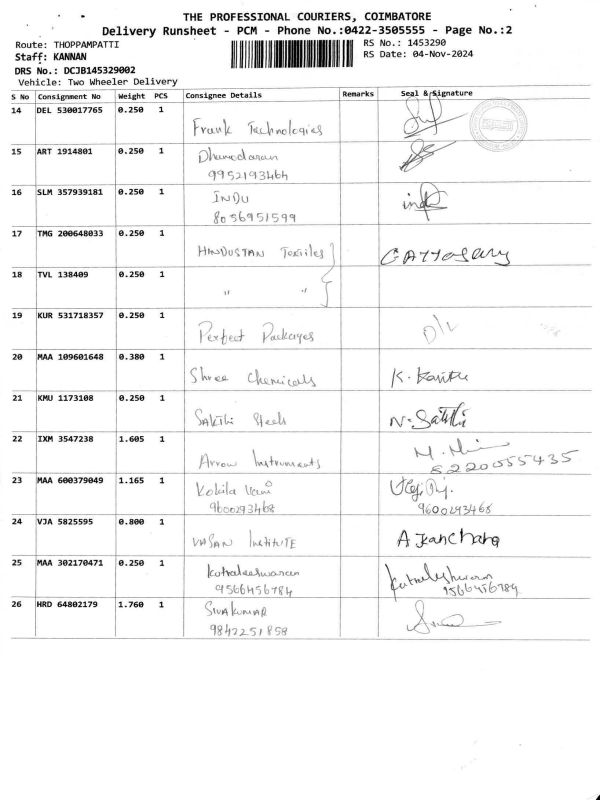 THE PROFESSIONAL COURIERS, COIMBATORE
Delivery Runsheet - PCM - Phone No.:0422-3505555 - Page No.:2
Route: THOPPAMPATTI
RS No.: 1453290
Staff: KANNAN
RS Date: 04-Nov-2024
DRS No.: DCJB145329002
Vehicle: Two Wheeler Delivery
S No Consignment No Weight PCS Consignee Details Remarks Seal & Signature
14 DEL 530017765 0.250 1
Frank Technologies
15 ART 1914801 0.250 1
Dhamodaran
9952193464
16 SLM 357939181 0.250 1
INDU
8056951599
17 TMG 200648033 0.250 1
HINDUSTAN Textiles
18 TVL 138409 0.250 1
" "
19 KUR 531718357 0.250 1
Perfect Packages D/L
20 MAA 109601648 0.380 1
Shree Chemicals K. Kavitha
21 KMU 1173108 0.250 1
Sakthi Steels N. Sakthi
22 IXM 3547238 1.605 1
Arrow Instruments
8220055435
23 MAA 600379049 1.165 1
Kokila Vani
9600293468 9600293468
24 VJA 5825595 0.800 1
VASAN Institute A Kanchana
25 MAA 302170471 0.250 1
Kotraleeshwaran
9566456784 9566456784
26 HRD 64802179 1.760 1
SIVAKUMAR
9842251858